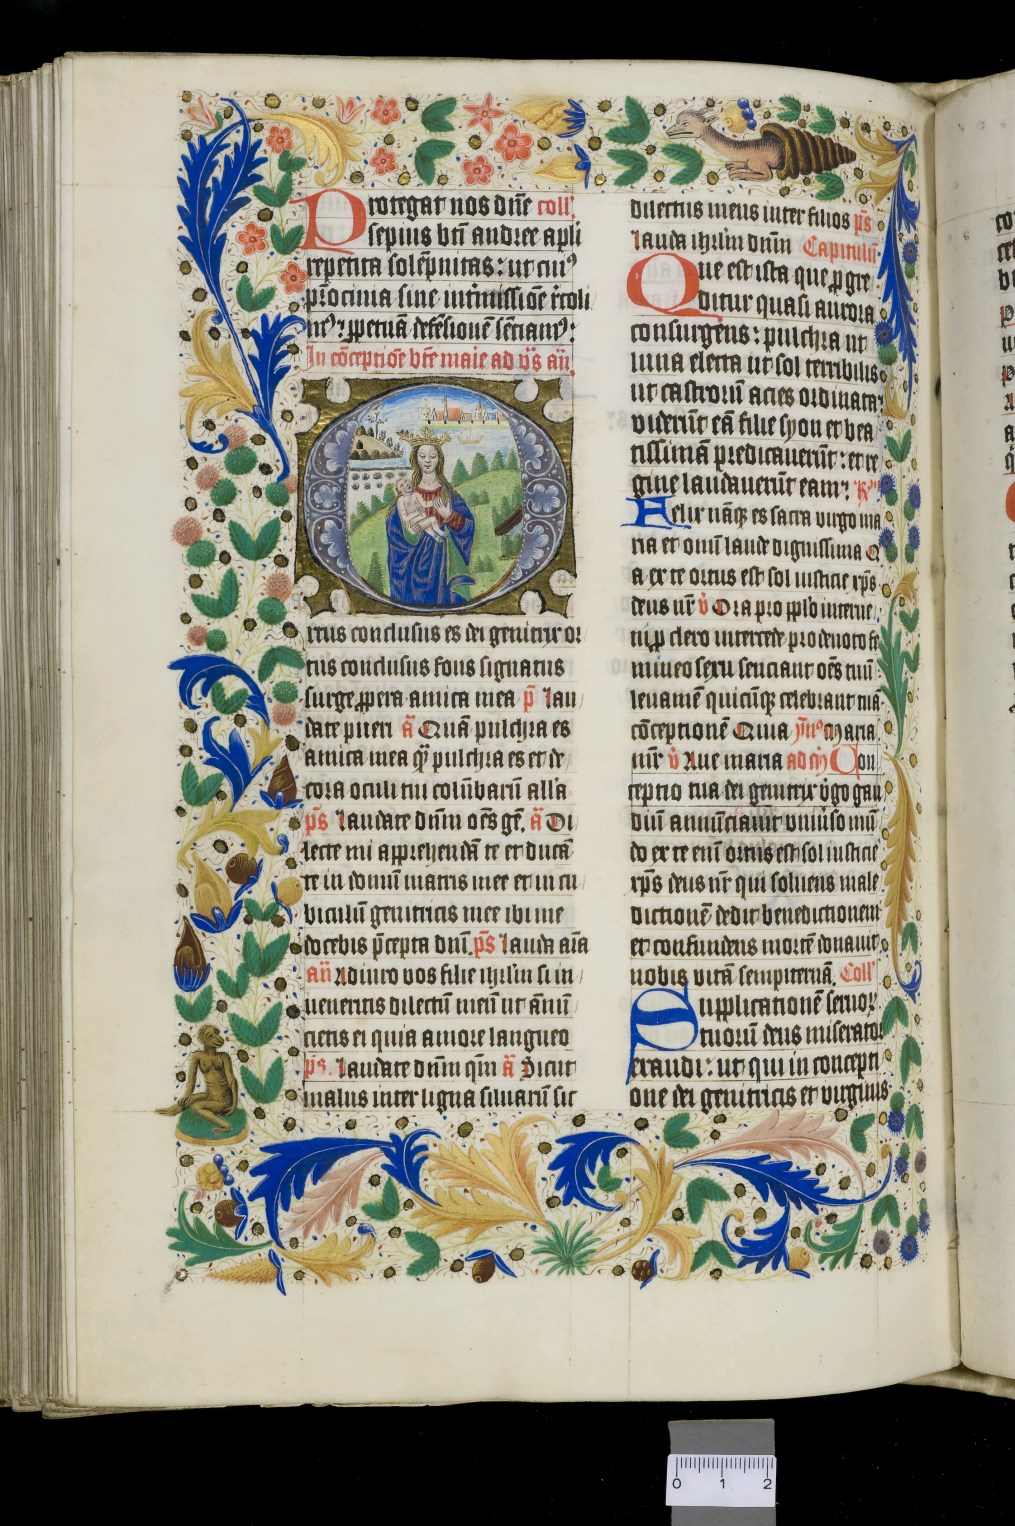 Protegat nos dñe coll'.
sepius btĩ andree apľi
repetita solẽpnitas: ut cui⁹
pr̃ocinia sine int̃missiõe r̃coli
m⁹: ꝑpetuã defẽsionẽ sẽciam⁹:
In cõceptiõe bt̃e maie ad v̾s añ.
Ortus conclusus es dei genitrix or
tus conclusus fons signatus
surge ꝓpera amica mea p̃ lau
date pueri ã Quã pulchra es
amica mea q̃ pulchra es et de
cora oculi tui colũbarũ allã
p̃s laudate dñm oẽs gẽ. ã Di
lecte mi apprehendã te et ducã
te in domũ matris mee et in cu
biculũ genitricis mee ibi me
docebis p̃cepta dñi. p̃s lauda aĩa
añ Adiuro vos filie ihrľm si in
veneritis dilectũ meũ ut ãnũ
cietis ei quia amore langueo
p̃s. laudate dñm qm̃ ã Sicut
malus inter ligna silvarũ sic
dilectus meus inter filios p̃s
lauda ihrľm dñm Capitulũ
Que est ista que ꝓgre
ditur quasi aurora
consurgens: pulchra ut
luna electa ut sol terribilis
ut castrorũ acies ordinata:
viderũt eã filie syon et bea
tissimã predicaverũt: et re
gine laudaverũt eam: R̃
Felix nãq̃ es sacra virgo ma
ria et omĩ laude dignissima Q
a ex te ortus est sol iusticie xp̃s
deus nr̃ v̾ Ora pro pplo interve
ni ꝓ clero intercede pro devoto fe
mineo sexu senciant oẽs tuũ
levamẽ quicũq̃ celebrant tuã
cõceptionẽ Quia ym̃⁹ Maria.
mr̃ v̾ Ave maria ad m̃ Con
ceptio tua dei genitrix v̾go gau
diũ annũciavit univ̾so mũ
do ex te enĩ ortus est sol iusticie
xp̃s deus nr̃ qui solvens male
dictionẽ dedit benedictionem
et confundens mortẽ donavit
nobis vitã sempiternã. Coll'
Supplicationẽ servor̃
tuorũ deus miserator
exaudi: ut qui in concepti
one dei genitricis et virginis
0 1 2